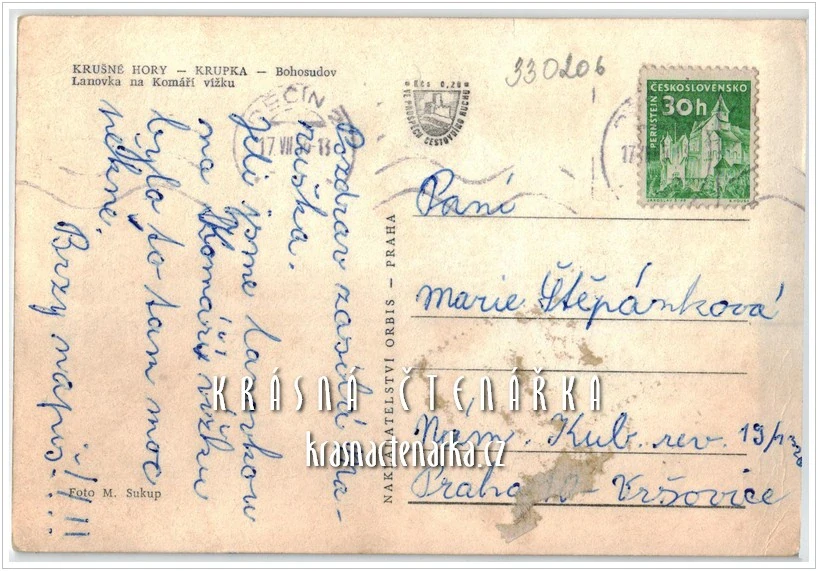 KRUŠNÉ HORY – KRUPKA – Bohosudov
Lanovka na Komáří vížku
330206
Kčs 0,20
VE PROSPĚCH CESTOVNÍHO RUCHU
DĚČÍN
17 VII
17
ČESKOSLOVENSKO
30h
PERNŠTEJN
Pozdrav zasílá Ma-
ruška.
Jeli jsme lanovkou
na Komáří vížku
bylo to tam moc
pěkné.
Brzy napiš!!!!!
NAKLADATELSTVÍ ORBIS – PRAHA
Paní
Marie Štěpánková
Nám. Kub. rev. 19
Praha 10 - Vršovice
Foto M. Sukup
KRÁSNÁ ČTENÁŘKA
krasnactenarka.cz